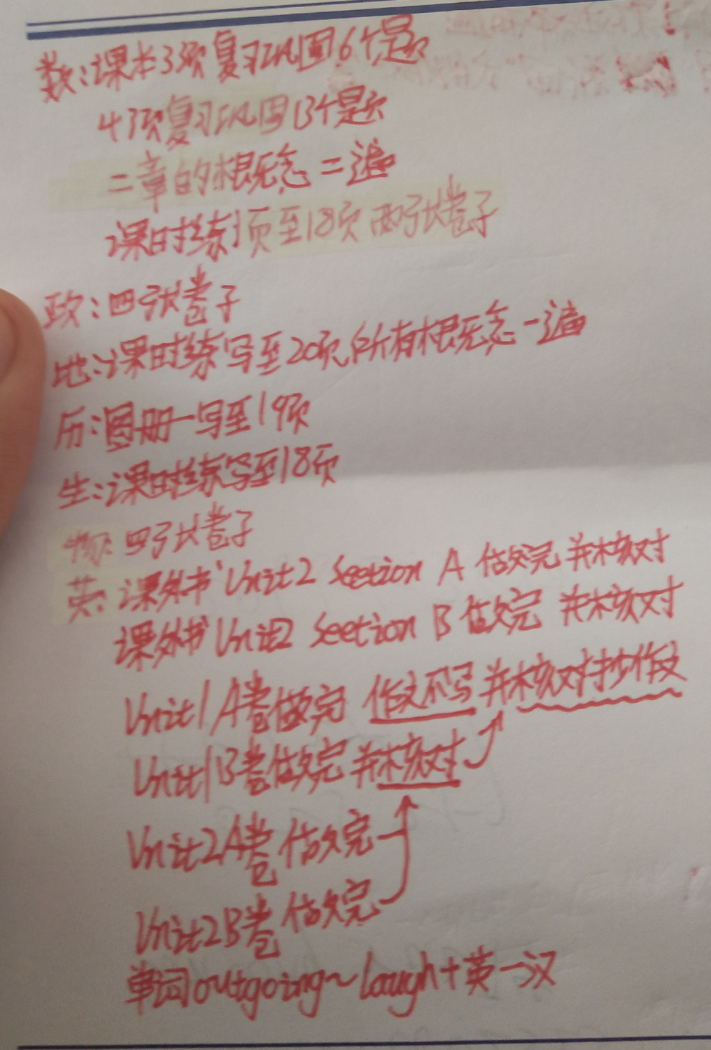 数:课本3页复习巩固6个题
43页复习巩固13个题
二章的概念二遍
课时练1页至18页两张卷子
政:四张卷子
地:课时练写至20页所有概念一遍
历:图册一写至19页
生:课时练写至18页
物:四张卷子
英:课外书Unit2 Section A做完并核对
课外书Unit2 Section B做完并核对
Unit1A卷做完 作文不写并核对抄作文
Unit1B卷做完并核对
Unit2A卷做完
Unit2B卷做完
单词outgoing~laugh+英一汉